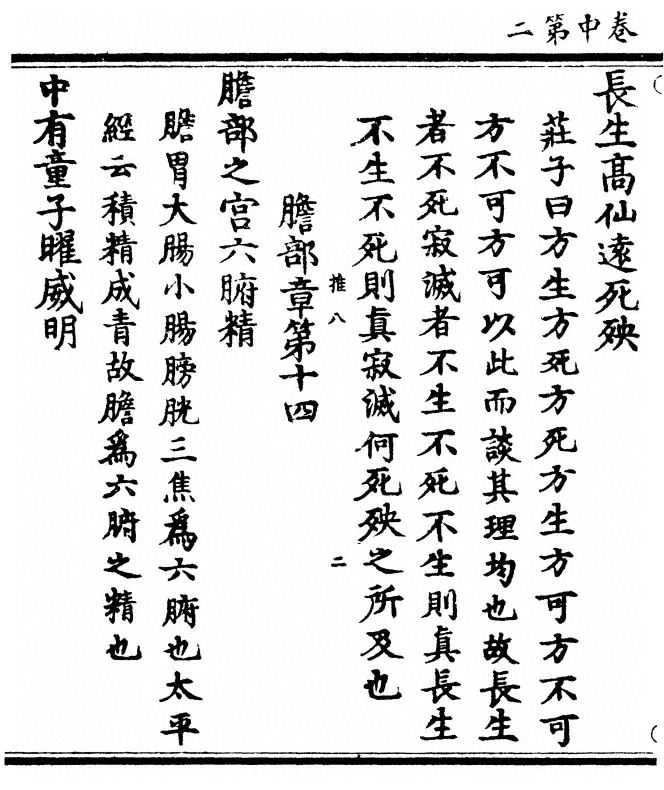 卷中第二
長生高仙遠死殃
莊子曰方生方死方死方生方可方不可
方不可方可以此而談其理均也故長生
者不死寂滅者不生不死不生則真長生
不生不死則真寂滅何死殃之所及也
推八 二
膽部章第十四
膽部之宮六腑精
膽胃大腸小腸膀胱三焦為六腑也太平
經云積精成青故膽為六腑之精也
中有童子曜威明